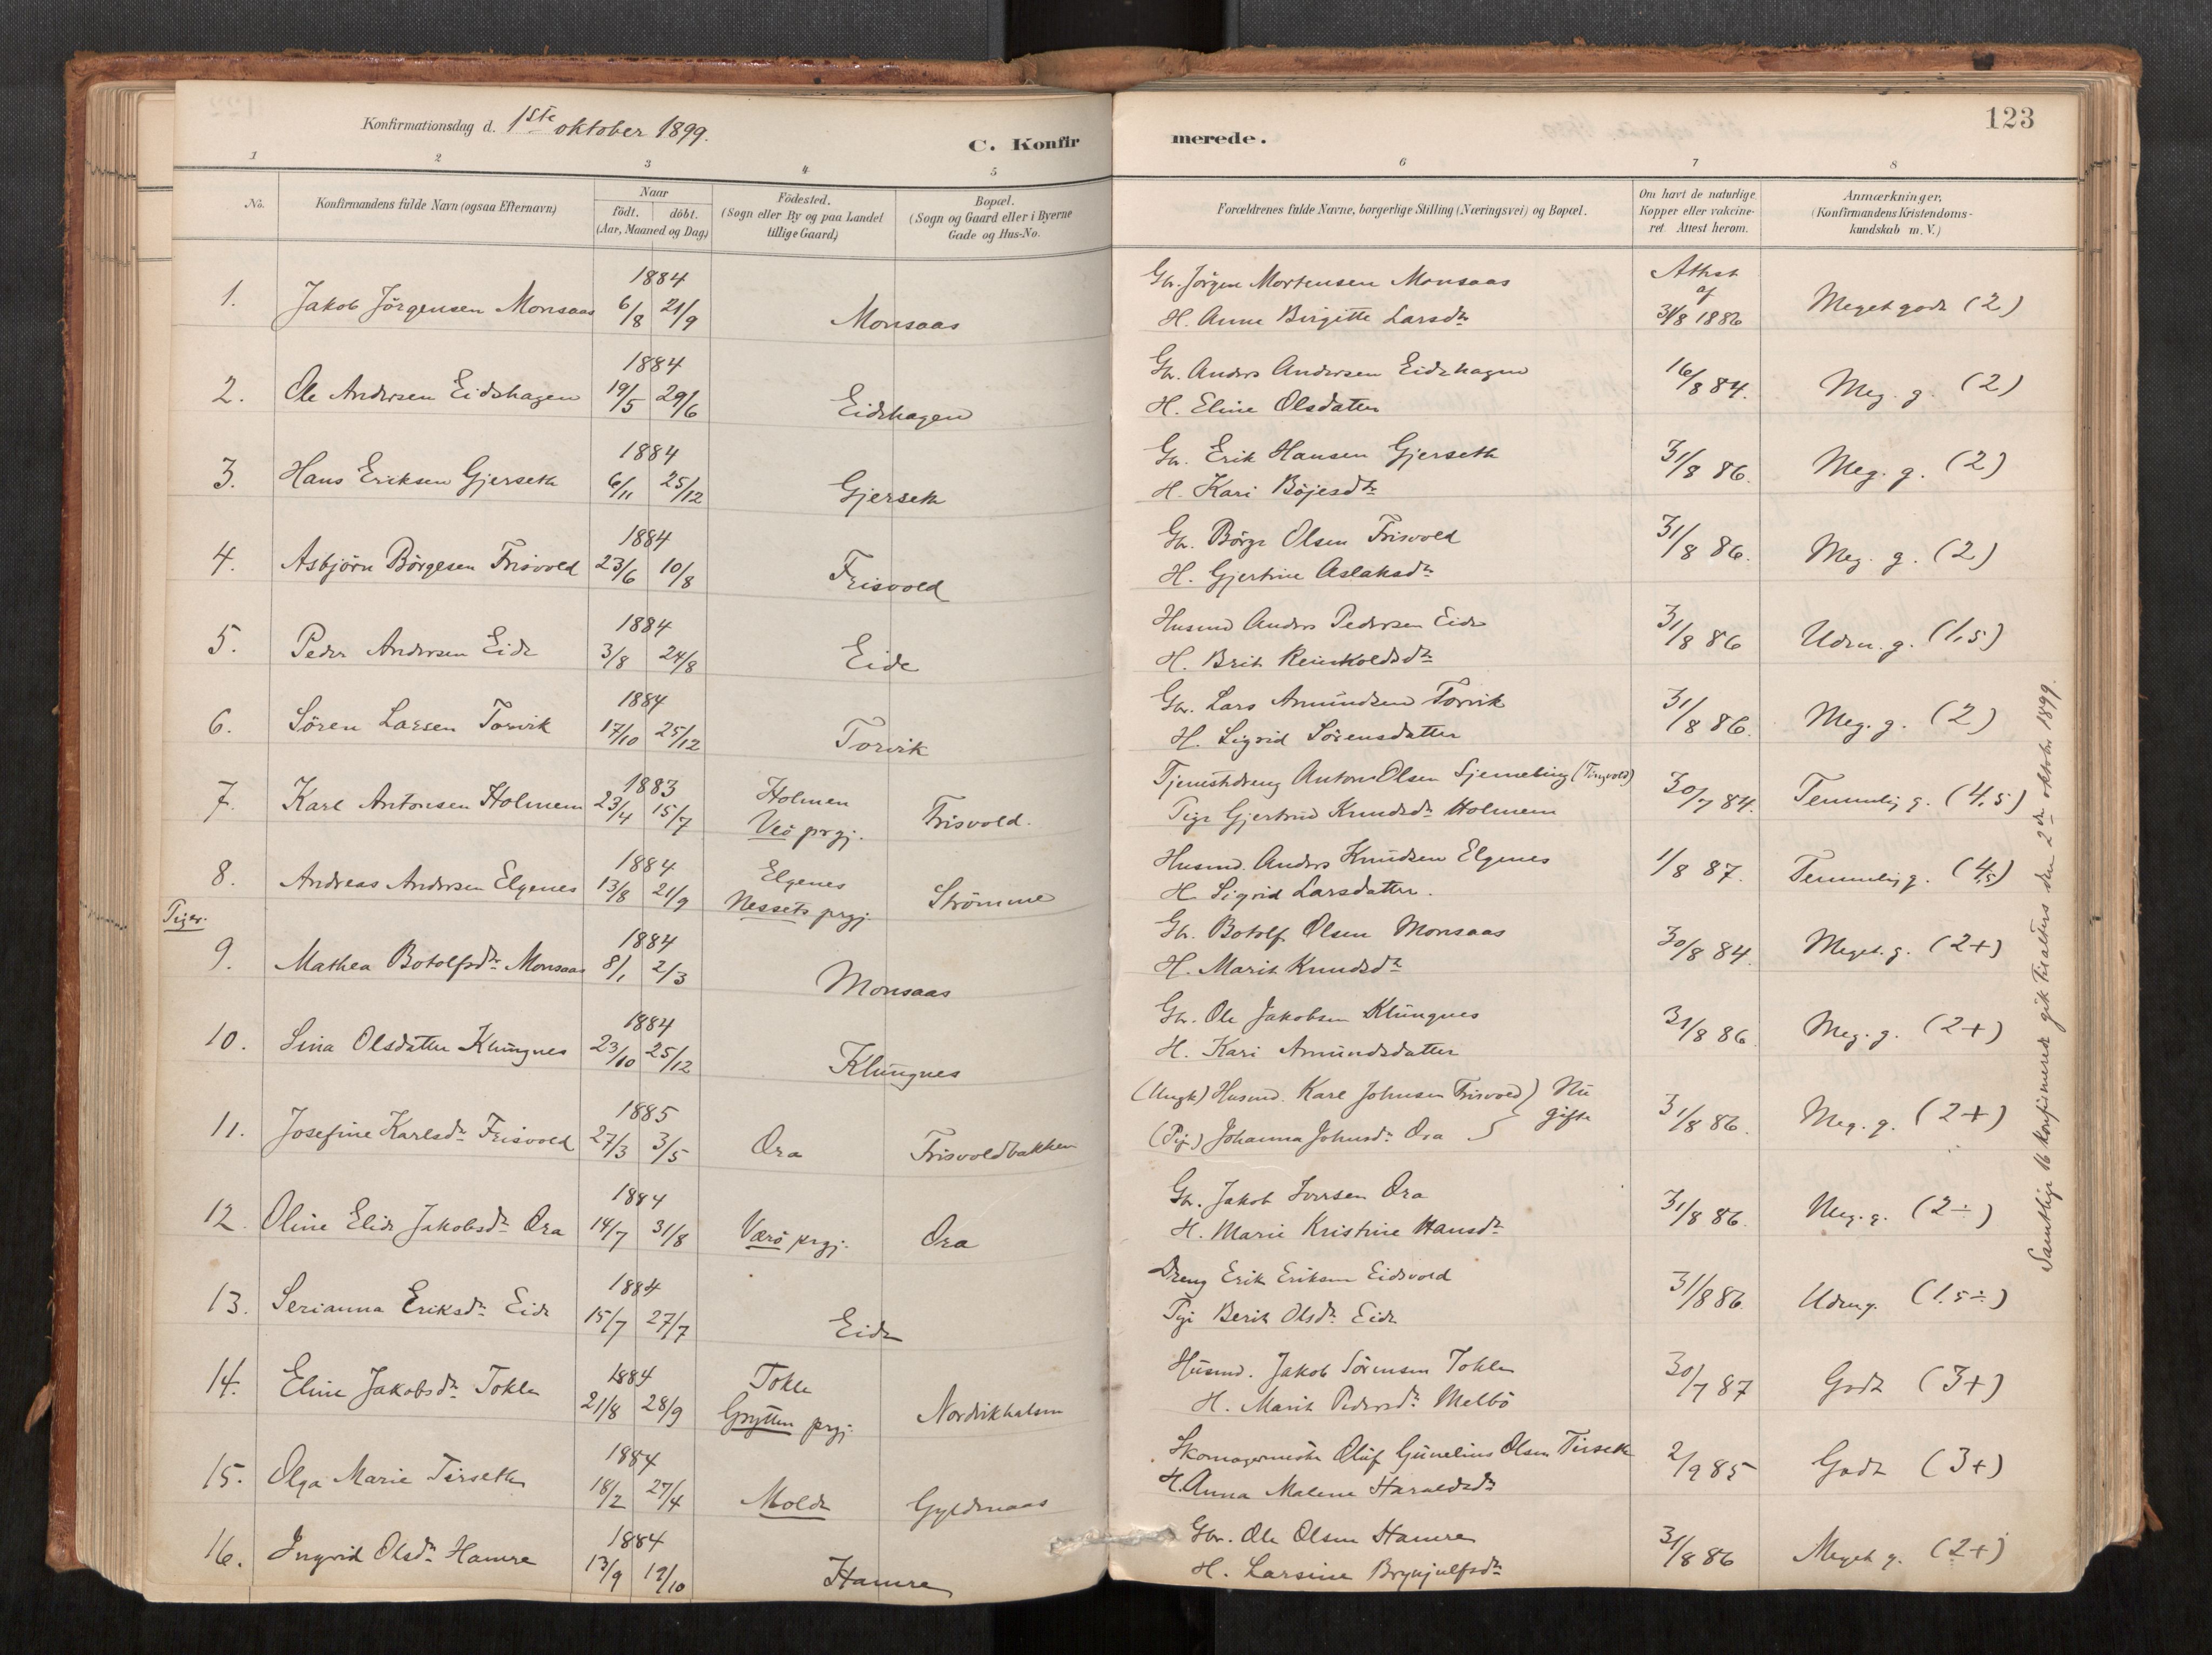 123
Konfirmationsdag d. 1ste oktober 1899.
C. Konfirmerede.
1 2 3 4 5 6 7 8
No.
Konfirmandens fulde Navn (ogsaa Efternavn)
Naar
födt. döbt.
(Aar, Maaned og Dag)
Födested.
(Sogn eller By og paa Landet
tillige Gaard)
Bopæl.
(Sogn og Gaard eller i Byerne
Gade og Hus-No.
Forældrenes fulde Navne, borgerlige Stilling (Næringsvei) og Bopæl.
Om havt de naturlige
Kopper eller vakcine-
ret. Attest herom.
Anmærkninger,
(Konfirmandens Kristendoms-
kundskab m. V.)
1. Jakob Jörgensen Monsaas 1884 6/8 21/9 Monsaas
Gbr. Jörgen Mortensen Monsaas
H. Anne Birgitte Larsdtr
Attest af 31/8 1886 Meget godt (2)
2. Ole Andersen Eidshagen 1884 19/5 29/6 Eidshagen
Gbr. Anders Andersen Eidshagen
H. Eline Olsdatter
16/8 84. Meg. g. (2)
3. Hans Eriksen Gjerseth 1884 6/11 25/12 Gjerseth
Gbr. Erik Hansen Gjerseth
H. Kari Böjesdtr
31/8 86. Meg. g. (2)
4. Asbjörn Börgesen Frisvold 1884 23/6 10/8 Frisvold
Gbr. Börge Olsen Frisvold
H. Gjertine Aslaksdtr
31/8 86. Meg. g. (2)
5. Peder Andersen Eide 1884 3/8 24/8 Eide
Husmd Anders Pedersen Eide
H. Brit Reinholdsdtr
31/8 86 Udm. g. (1,5)
6. Sören Larsen Torvik 1884 17/10 25/12 Torvik
Gbr. Lars Amundsen Torvik
H. Sigrid Sörensdatter
31/8 86. Meg. g. (2)
7. Karl Antonsen Holmem 1883 23/4 15/7 Holmen Veö prgj. Frisvold.
Tjenestdreng Anton Olsen Sjemeling (Tingvold)
Pige Gjertrud Knudsdtr Holmem
30/7 84. Temmelig g. (4,5)
8. Andreas Andersen Elgenes 1884 13/8 21/9 Elgenes Nessets prgj. Strömme
Husmd. Anders Knudsen Elgenes
H. Sigrid Larsdatter.
1/8 87. Temmelig g. (4,5)
Piger.
9. Mathea Botolfsdtr Monsaas 1884 8/1 2/3 Monsaas
Gbr. Botolf Olsen Monsaas
H. Marit Knudsdtr
30/8 84. Meget. g. (2+)
10. Lina Olsdatter Klungnes 1884 23/10 25/12 Klungnes
Gbr. Ole Jakobsen Klungnes
H. Kari Amundsdatter
31/8 86 Meg. g. (2+)
11. Josefine Karlsdtr Frisvold 1885 27/3 3/5 Ora Frisvoldbakken
(Ungk) Husmd. Karl Johnsen Frisvold) Nu
(Pige) Johanna Johnsdtr Ora gifte
31/8 86. Meg. g. (2+)
12. Oline Elide Jakobsdtr Ora 1884 14/7 31/8 Værö prgj. Ora
Gbr. Jakob Iversen Ora
H. Marie Kristine Hansdtr
31/8 86. Meg. g. (2÷)
13. Serianna Eriksdtr Eide 1884 15/7 27/7 Eide
Dreng Erik Eriksen Eidsvold
Pige Berit Olsdtr Eide
31/8 86 Udm g. (1.5÷)
14. Eline Jakobsdtr Tokle 1884 21/8 28/9 Tokle Grytten prgj. Nordvikhalsen
Husmd. Jakob Sörensen Tokle
H. Marit Pedersdtr Melbö
30/7 87 Godt (3+)
15. Olga Marie Tirseth 1884 18/2 27/4 Molde Gyldenaas
Skomagermester Oluf Gunelius Olsen Tirseth
H. Anna Malene Haraldsdtr
2/9 85 Godt (3+)
16. Ingrid Olsdtr Hamre 1884 13/9 12/10 Hamre
Gbr. Ole Olsen Hamre
H. Larsine Brynjulfsdtr
31/8 86 Meget g. (2+)
Samtlige 16 konfirmerede gik til alters den 2den oktober 1899.